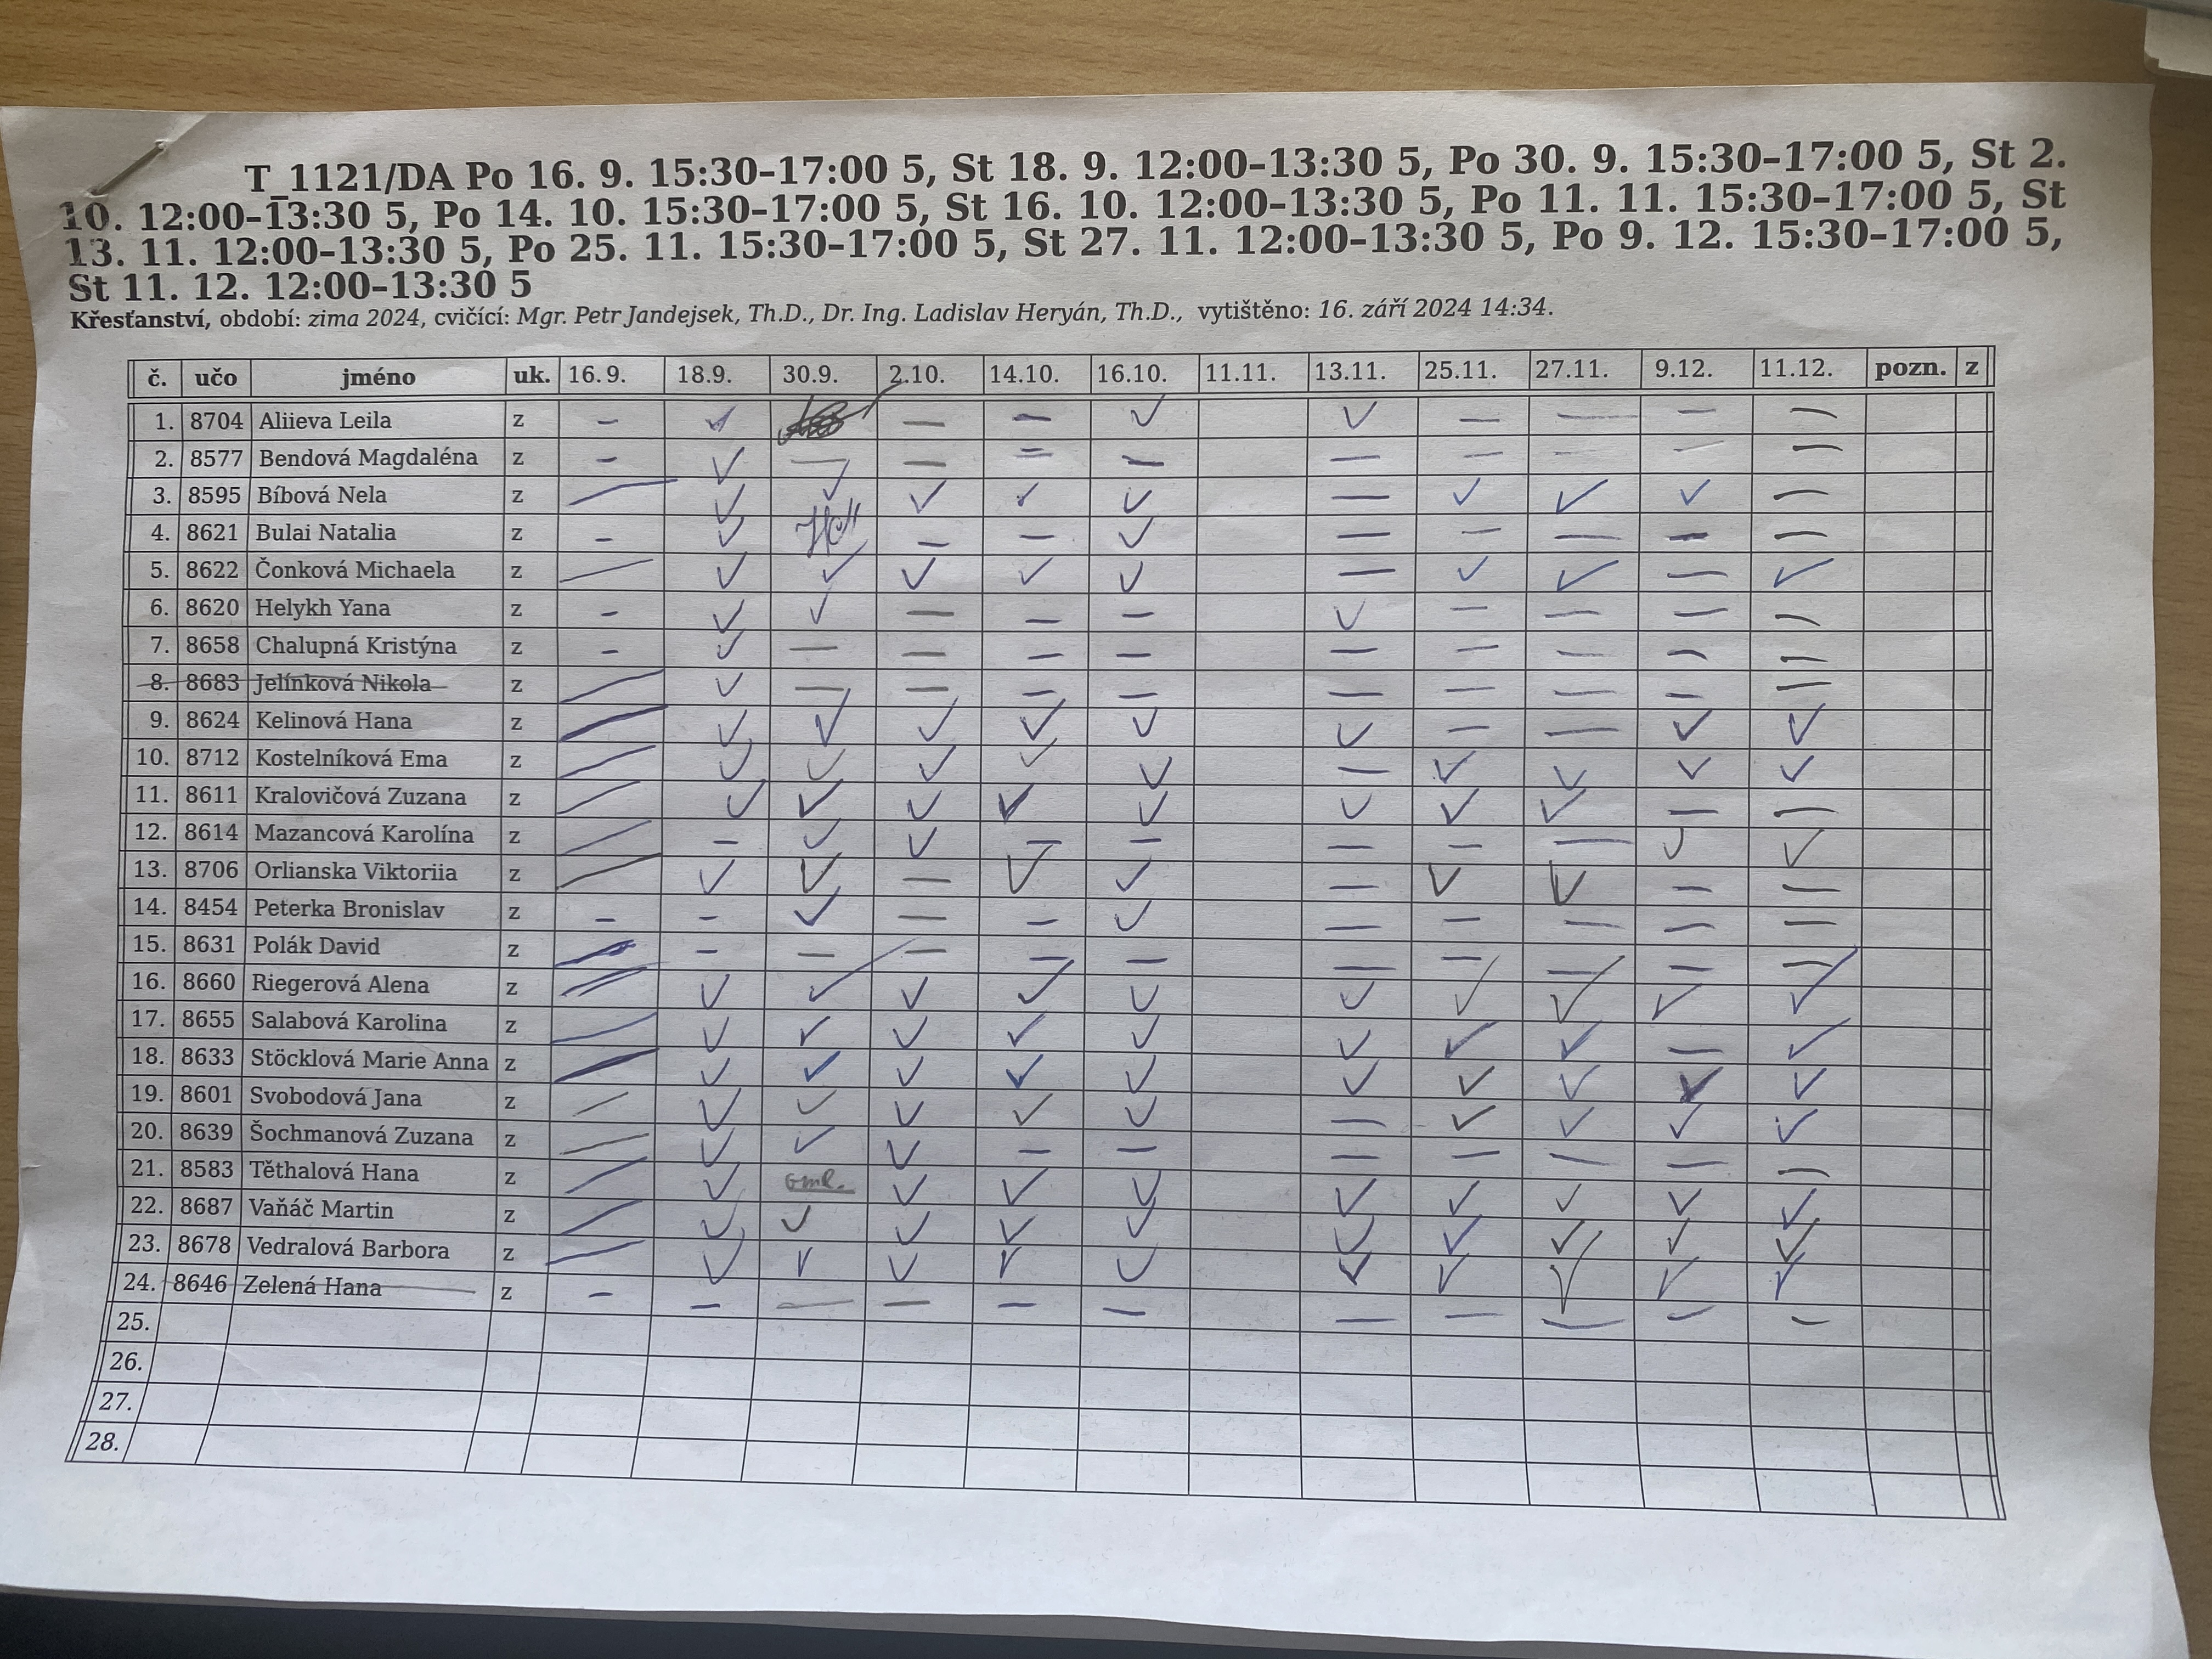 T_1121/DA Po 16. 9. 15:30–17:00 5, St 18. 9. 12:00–13:30 5, Po 30. 9. 15:30–17:00 5, St 2.
10. 12:00–13:30 5, Po 14. 10. 15:30–17:00 5, St 16. 10. 12:00–13:30 5, Po 11. 11. 15:30–17:00 5, St
13. 11. 12:00–13:30 5, Po 25. 11. 15:30–17:00 5, St 27. 11. 12:00–13:30 5, Po 9. 12. 15:30–17:00 5,
St 11. 12. 12:00–13:30 5
Křesťanství, období: zima 2024, cvičící: Mgr. Petr Jandejsek, Th.D., Dr. Ing. Ladislav Heryán, Th.D., vytištěno: 16. září 2024 14:34.
č. učo jméno uk. 16.9. 18.9. 30.9. 2.10. 14.10. 16.10. 11.11. 13.11. 25.11. 27.11. 9.12. 11.12. pozn. z
1. 8704 Aliieva Leila z – ✓ — – ✓ ✓ — — – —
2. 8577 Bendová Magdaléna z – ✓ — — = – — — — — —
3. 8595 Bíbová Nela z / ✓ ✓ ✓ ✓ ✓ — ✓ ✓ ✓ —
4. 8621 Bulai Natalia z – ✓ — — ✓ — — — – —
5. 8622 Čonková Michaela z / ✓ ✓ ✓ ✓ ✓ — ✓ ✓ — ✓
6. 8620 Helykh Yana z – ✓ ✓ — — — ✓ — — — —
7. 8658 Chalupná Kristýna z – ✓ — — — — — — — — —
8. 8683 Jelínková Nikola z / ✓ — — — — — — — — —
9. 8624 Kelinová Hana z / ✓ ✓ ✓ ✓ ✓ ✓ — — ✓ ✓
10. 8712 Kostelníková Ema z / ✓ ✓ ✓ ✓ ✓ — ✓ ✓ ✓ ✓
11. 8611 Kralovičová Zuzana z / ✓ ✓ ✓ ✓ ✓ ✓ ✓ ✓ — —
12. 8614 Mazancová Karolína z / – ✓ ✓ — — — — — ✓ ✓
13. 8706 Orlianska Viktoriia z / ✓ ✓ — ✓ ✓ — ✓ ✓ — —
14. 8454 Peterka Bronislav z – – ✓ — — ✓ — — — — —
15. 8631 Polák David z / – — — — — — — — — —
16. 8660 Riegerová Alena z / ✓ ✓ ✓ ✓ ✓ ✓ ✓ ✓ ✓ ✓
17. 8655 Salabová Karolina z / ✓ ✓ ✓ ✓ ✓ ✓ ✓ ✓ — ✓
18. 8633 Stöcklová Marie Anna z / ✓ ✓ ✓ ✓ ✓ ✓ ✓ ✓ ✓ ✓
19. 8601 Svobodová Jana z / ✓ ✓ ✓ ✓ ✓ — ✓ ✓ ✓ ✓
20. 8639 Šochmanová Zuzana z / ✓ ✓ ✓ — — — — — — —
21. 8583 Těthalová Hana z / ✓ oml. ✓ ✓ ✓ ✓ ✓ ✓ ✓ ✓
22. 8687 Vaňáč Martin z / ✓ ✓ ✓ ✓ ✓ ✓ ✓ ✓ ✓ ✓
23. 8678 Vedralová Barbora z / ✓ ✓ ✓ ✓ ✓ ✓ ✓ ✓ ✓ ✓
24. 8646 Zelená Hana z – — — — — — — — — — —
25.
26.
27.
28.